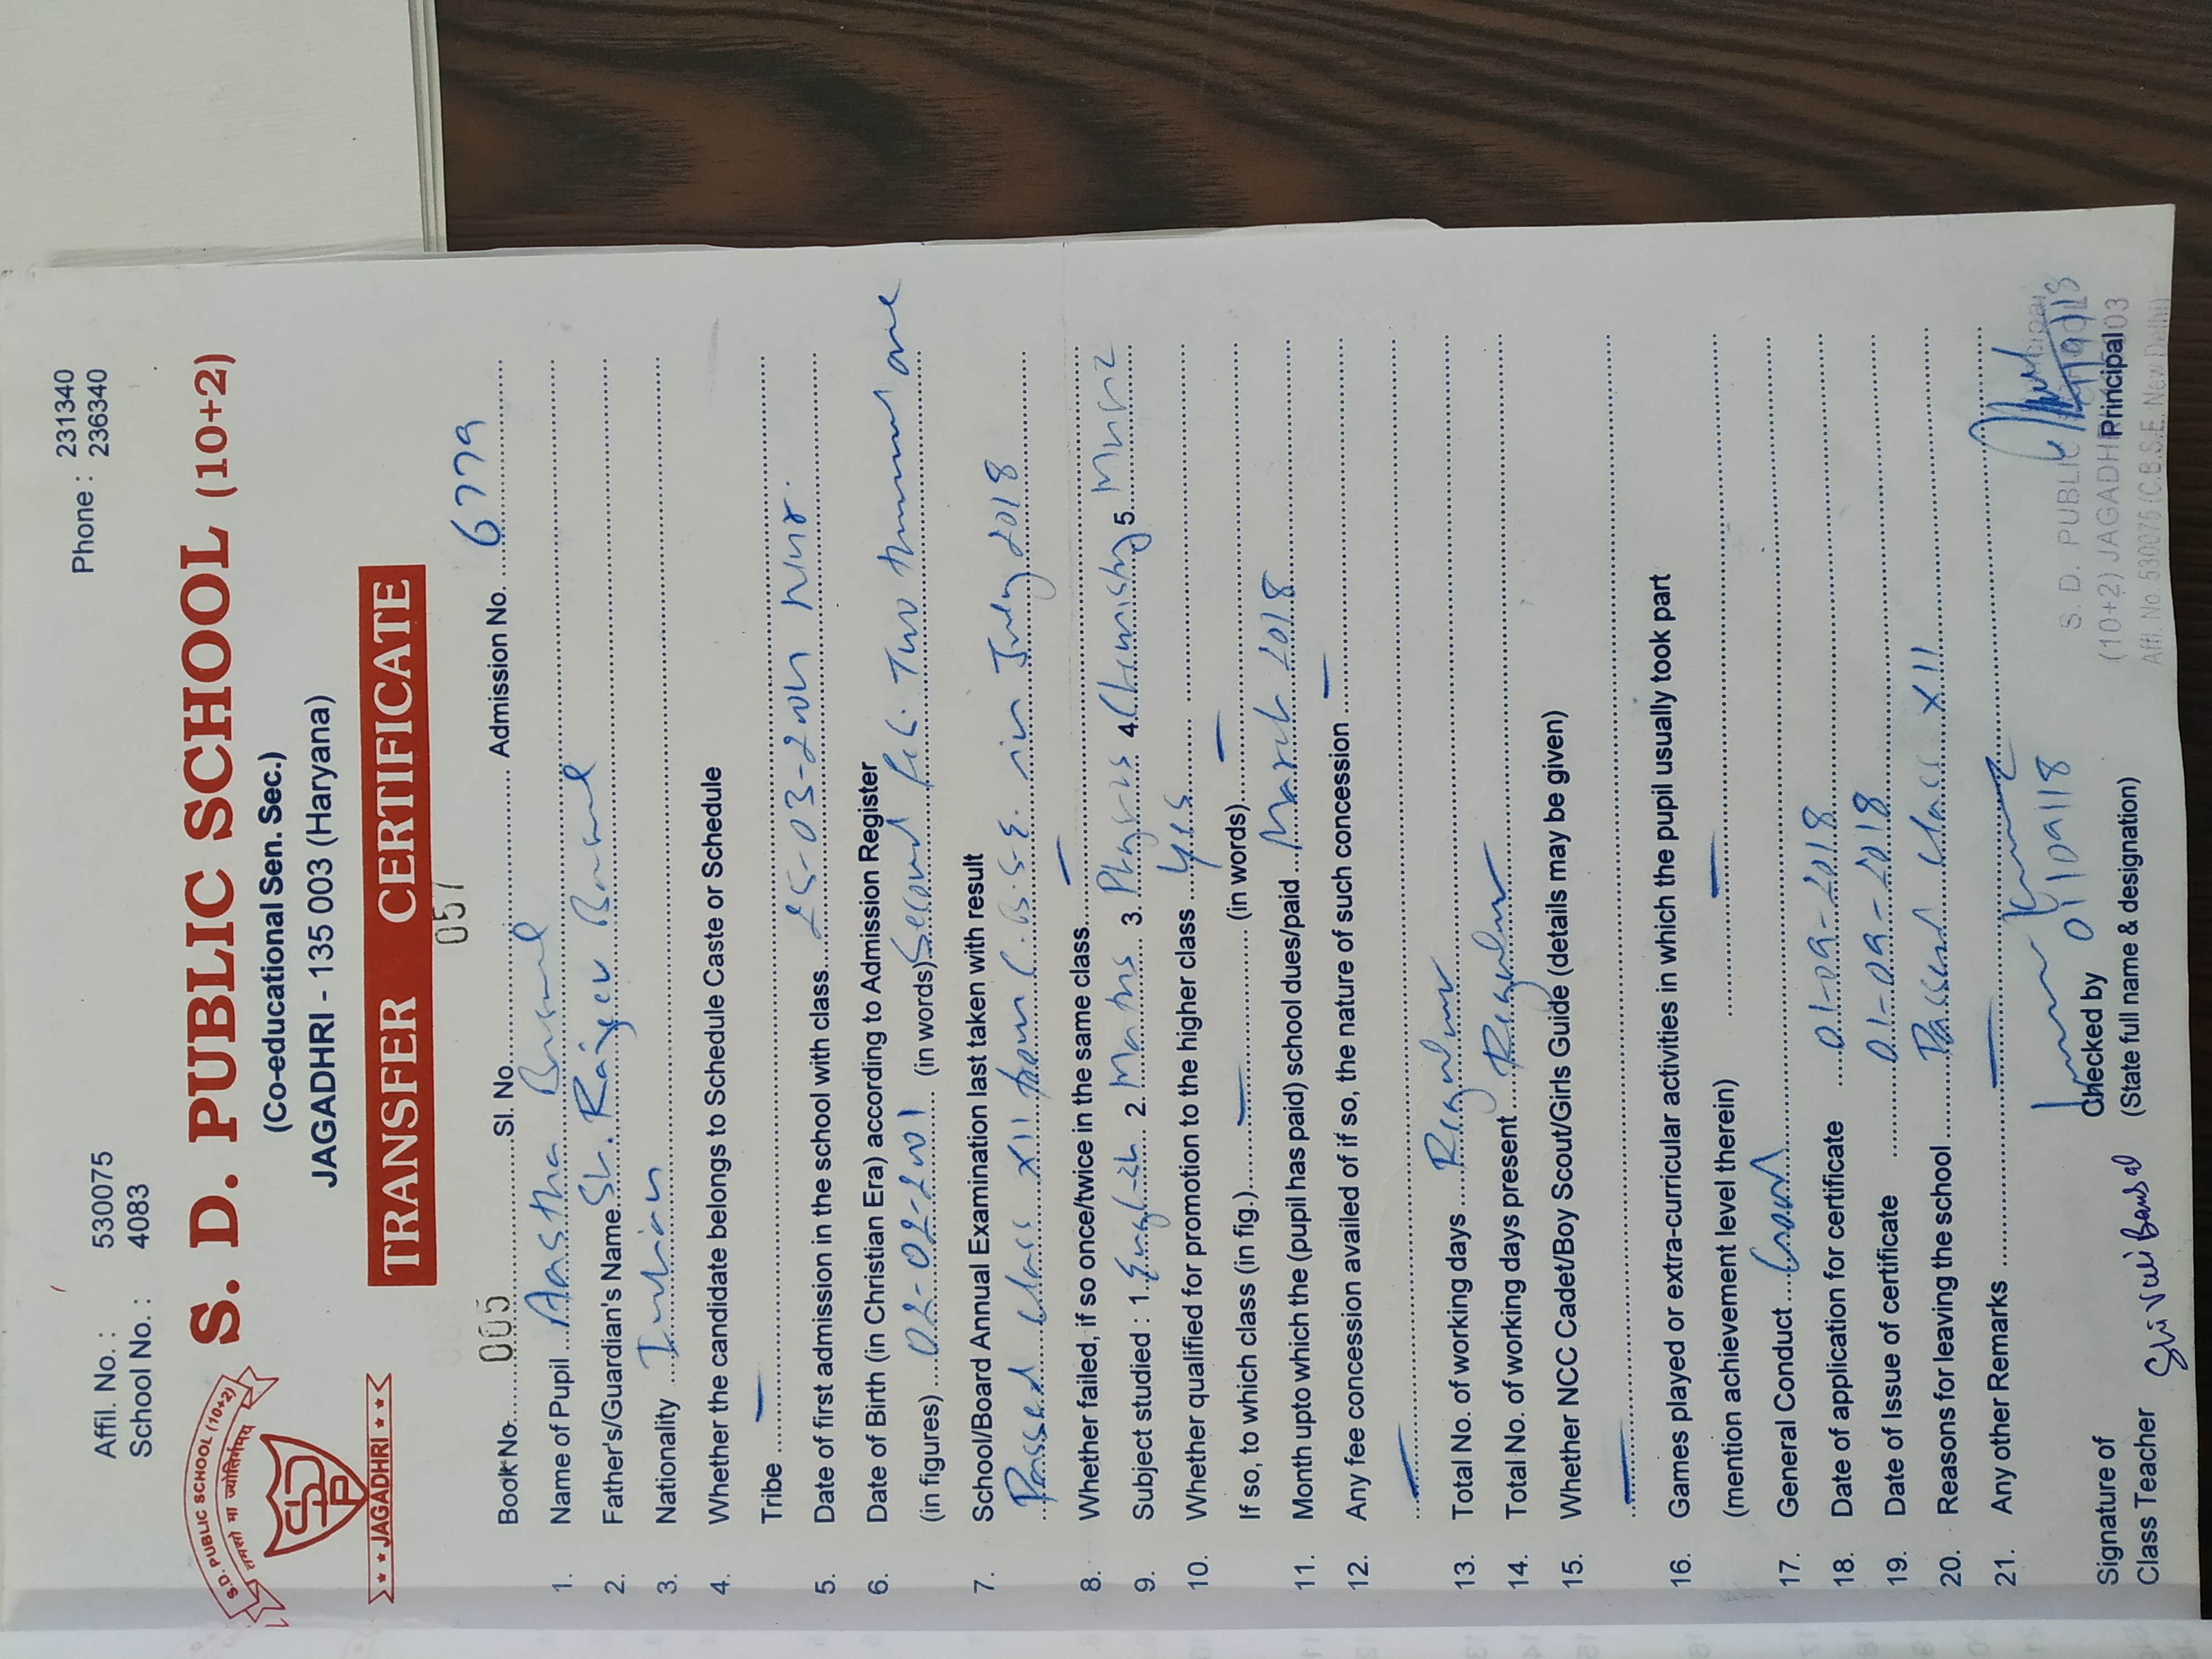 Affil. No. : 530075
School No. : 4083
Phone : 231340
236340
S.D. PUBLIC SCHOOL (10+2)
तमसो मा ज्योतिर्गमय
SDP
★ ★ JAGADHRI ★ ★
S. D. PUBLIC SCHOOL (10+2)
(Co-educational Sen. Sec.)
JAGADHRI - 135 003 (Haryana)
TRANSFER CERTIFICATE
Book No. 005 Sl. No. 057 Admission No. 6779
1. Name of Pupil Aastha Bansal
2. Father's/Guardian's Name Sh. Rajeev Bansal
3. Nationality Indian
4. Whether the candidate belongs to Schedule Caste or Schedule
Tribe —
5. Date of first admission in the school with class 25-03-2004 Nur.
6. Date of Birth (in Christian Era) according to Admission Register
(in figures) 02-02-2001 (in words) Second Feb. Two thousand one
7. School/Board Annual Examination last taken with result
Passed class XII from C.B.S.E. in July 2018
8. Whether failed, if so once/twice in the same class —
9. Subject studied : 1. English 2. Maths 3. Physics 4. Chemistry 5.
10. Whether qualified for promotion to the higher class Yes
If so, to which class (in fig.) — (in words) —
11. Month upto which the (pupil has paid) school dues/paid March 2018
12. Any fee concession availed of if so, the nature of such concession —
—
13. Total No. of working days Regular
14. Total No. of working days present Regular
15. Whether NCC Cadet/Boy Scout/Girls Guide (details may be given)
—
16. Games played or extra-curricular activities in which the pupil usually took part
(mention achievement level therein) —
17. General Conduct Good
18. Date of application for certificate 01-09-2018
19. Date of Issue of certificate 01-09-2018
20. Reasons for leaving the school Passed class XII
21. Any other Remarks —
01/09/18
Signature of
Class Teacher Shivali Bansal
Checked by
(State full name & designation)
Principal
S. D. PUBLIC
(10+2) JAGADHRI 03
Affl. No. 530075 (C.B.S.E. New Delhi)